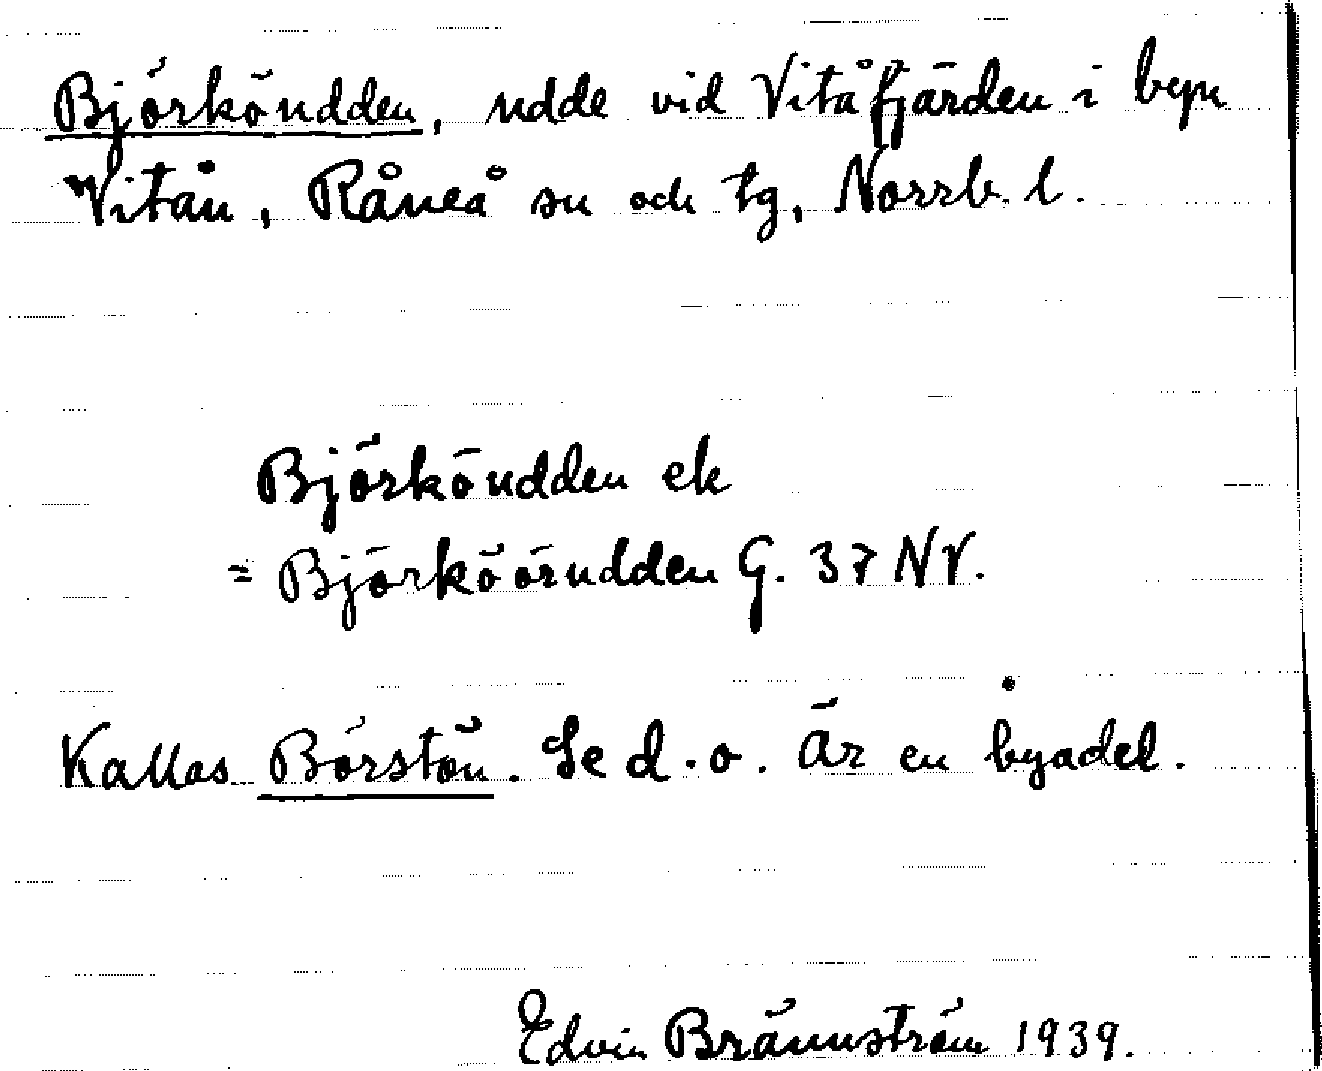 Björköudden, udde vid Vitåfjärden i byn
Vitån, Råneå sn och tg, Norrb. l.
Björköudden ek
= Björköörudden G. 37 NV.
Kallas Börstön. Se d.o. Är en byadel.
Edvin Brännström 1939.